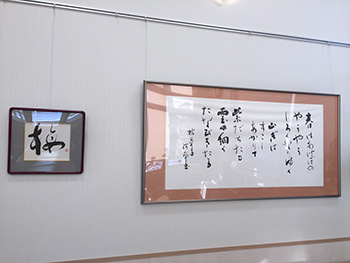 春はあけぼの
やうやう
しろくなり行く
山ぎは
すこし
あかりて
紫だちたる
雲の細く
たなびきたる